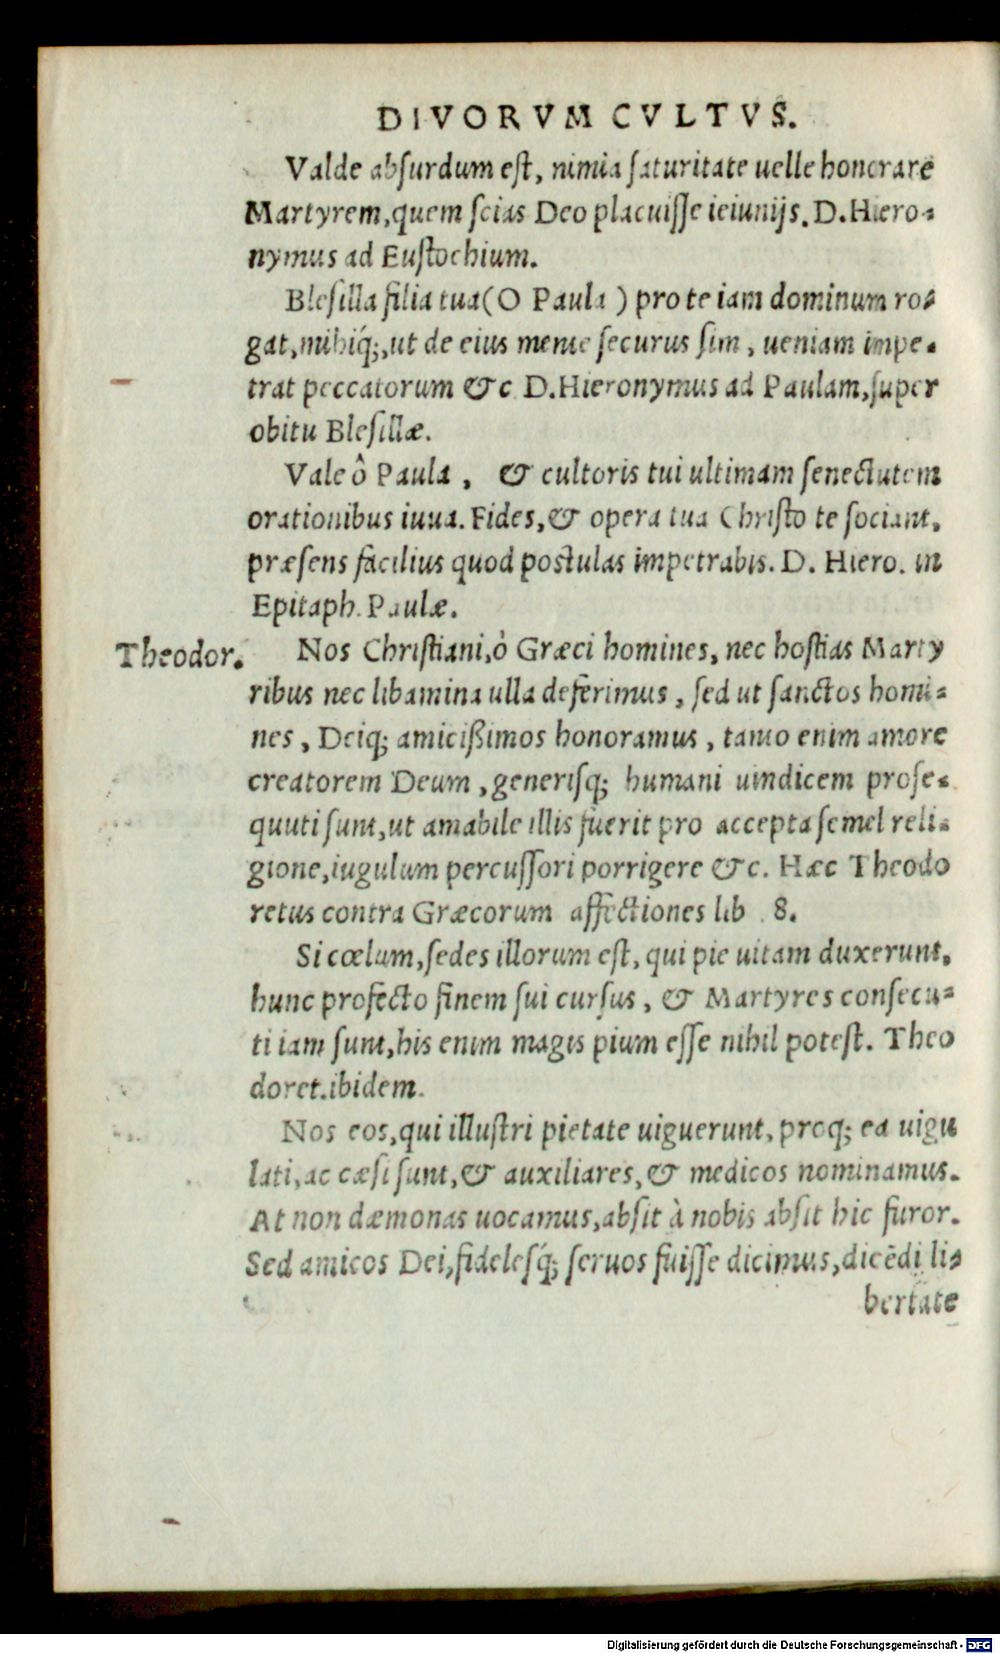 DIVORVM CVLTVS.
Valde absurdum est, nimia saturitate uelle honorare
Martyrem, quem scias Deo placuisse ieiunijs. D. Hiero-
nymus ad Eustochium.
Blesilla filia tua (O Paula) pro te iam dominum ro-
gat, mihiq́;, ut de eius mente securus sim, ueniam impe-
trat peccatorum &c D. Hieronymus ad Paulam, super
obitu Blesillæ.
Vale ô Paula, & cultoris tui ultimam senectutem
orationibus iuua. Fides, & opera tua Christo te sociant,
præsens facilius quod postulas impetrabis. D. Hiero. in
Epitaph. Paulæ.
Theodor.
Nos Christiani, ò Græci homines, nec hostias Marty
ribus nec libamina ulla deferimus, sed ut sanctos homi-
nes, Deiq; amicißimos honoramus, tanto enim amore
creatorem Deum, generisq; humani uindicem prose-
quuti sunt, ut amabile illis fuerit pro accepta semel reli-
gione, iugulum percussori porrigere &c. Hæc Theodo
retus contra Græcorum affectiones lib. 8.
Si cœlum, sedes illorum est, qui pie uitam duxerunt,
hunc profecto finem sui cursus, & Martyres consecu-
ti iam sunt, his enim magis pium esse nihil potest. Theo
doret. ibidem.
Nos eos, qui illustri pietate uiguerunt, proq; ea uigu
lati, ac cæsi sunt, & auxiliares, & medicos nominamus.
At non dæmonas uocamus, absit à nobis absit hic furor.
Sed amicos Dei, fidelesq́; seruos fuisse dicimus, dicēdi li-
bertate
Digitalisierung gefördert durch die Deutsche Forschungsgemeinschaft - DFG